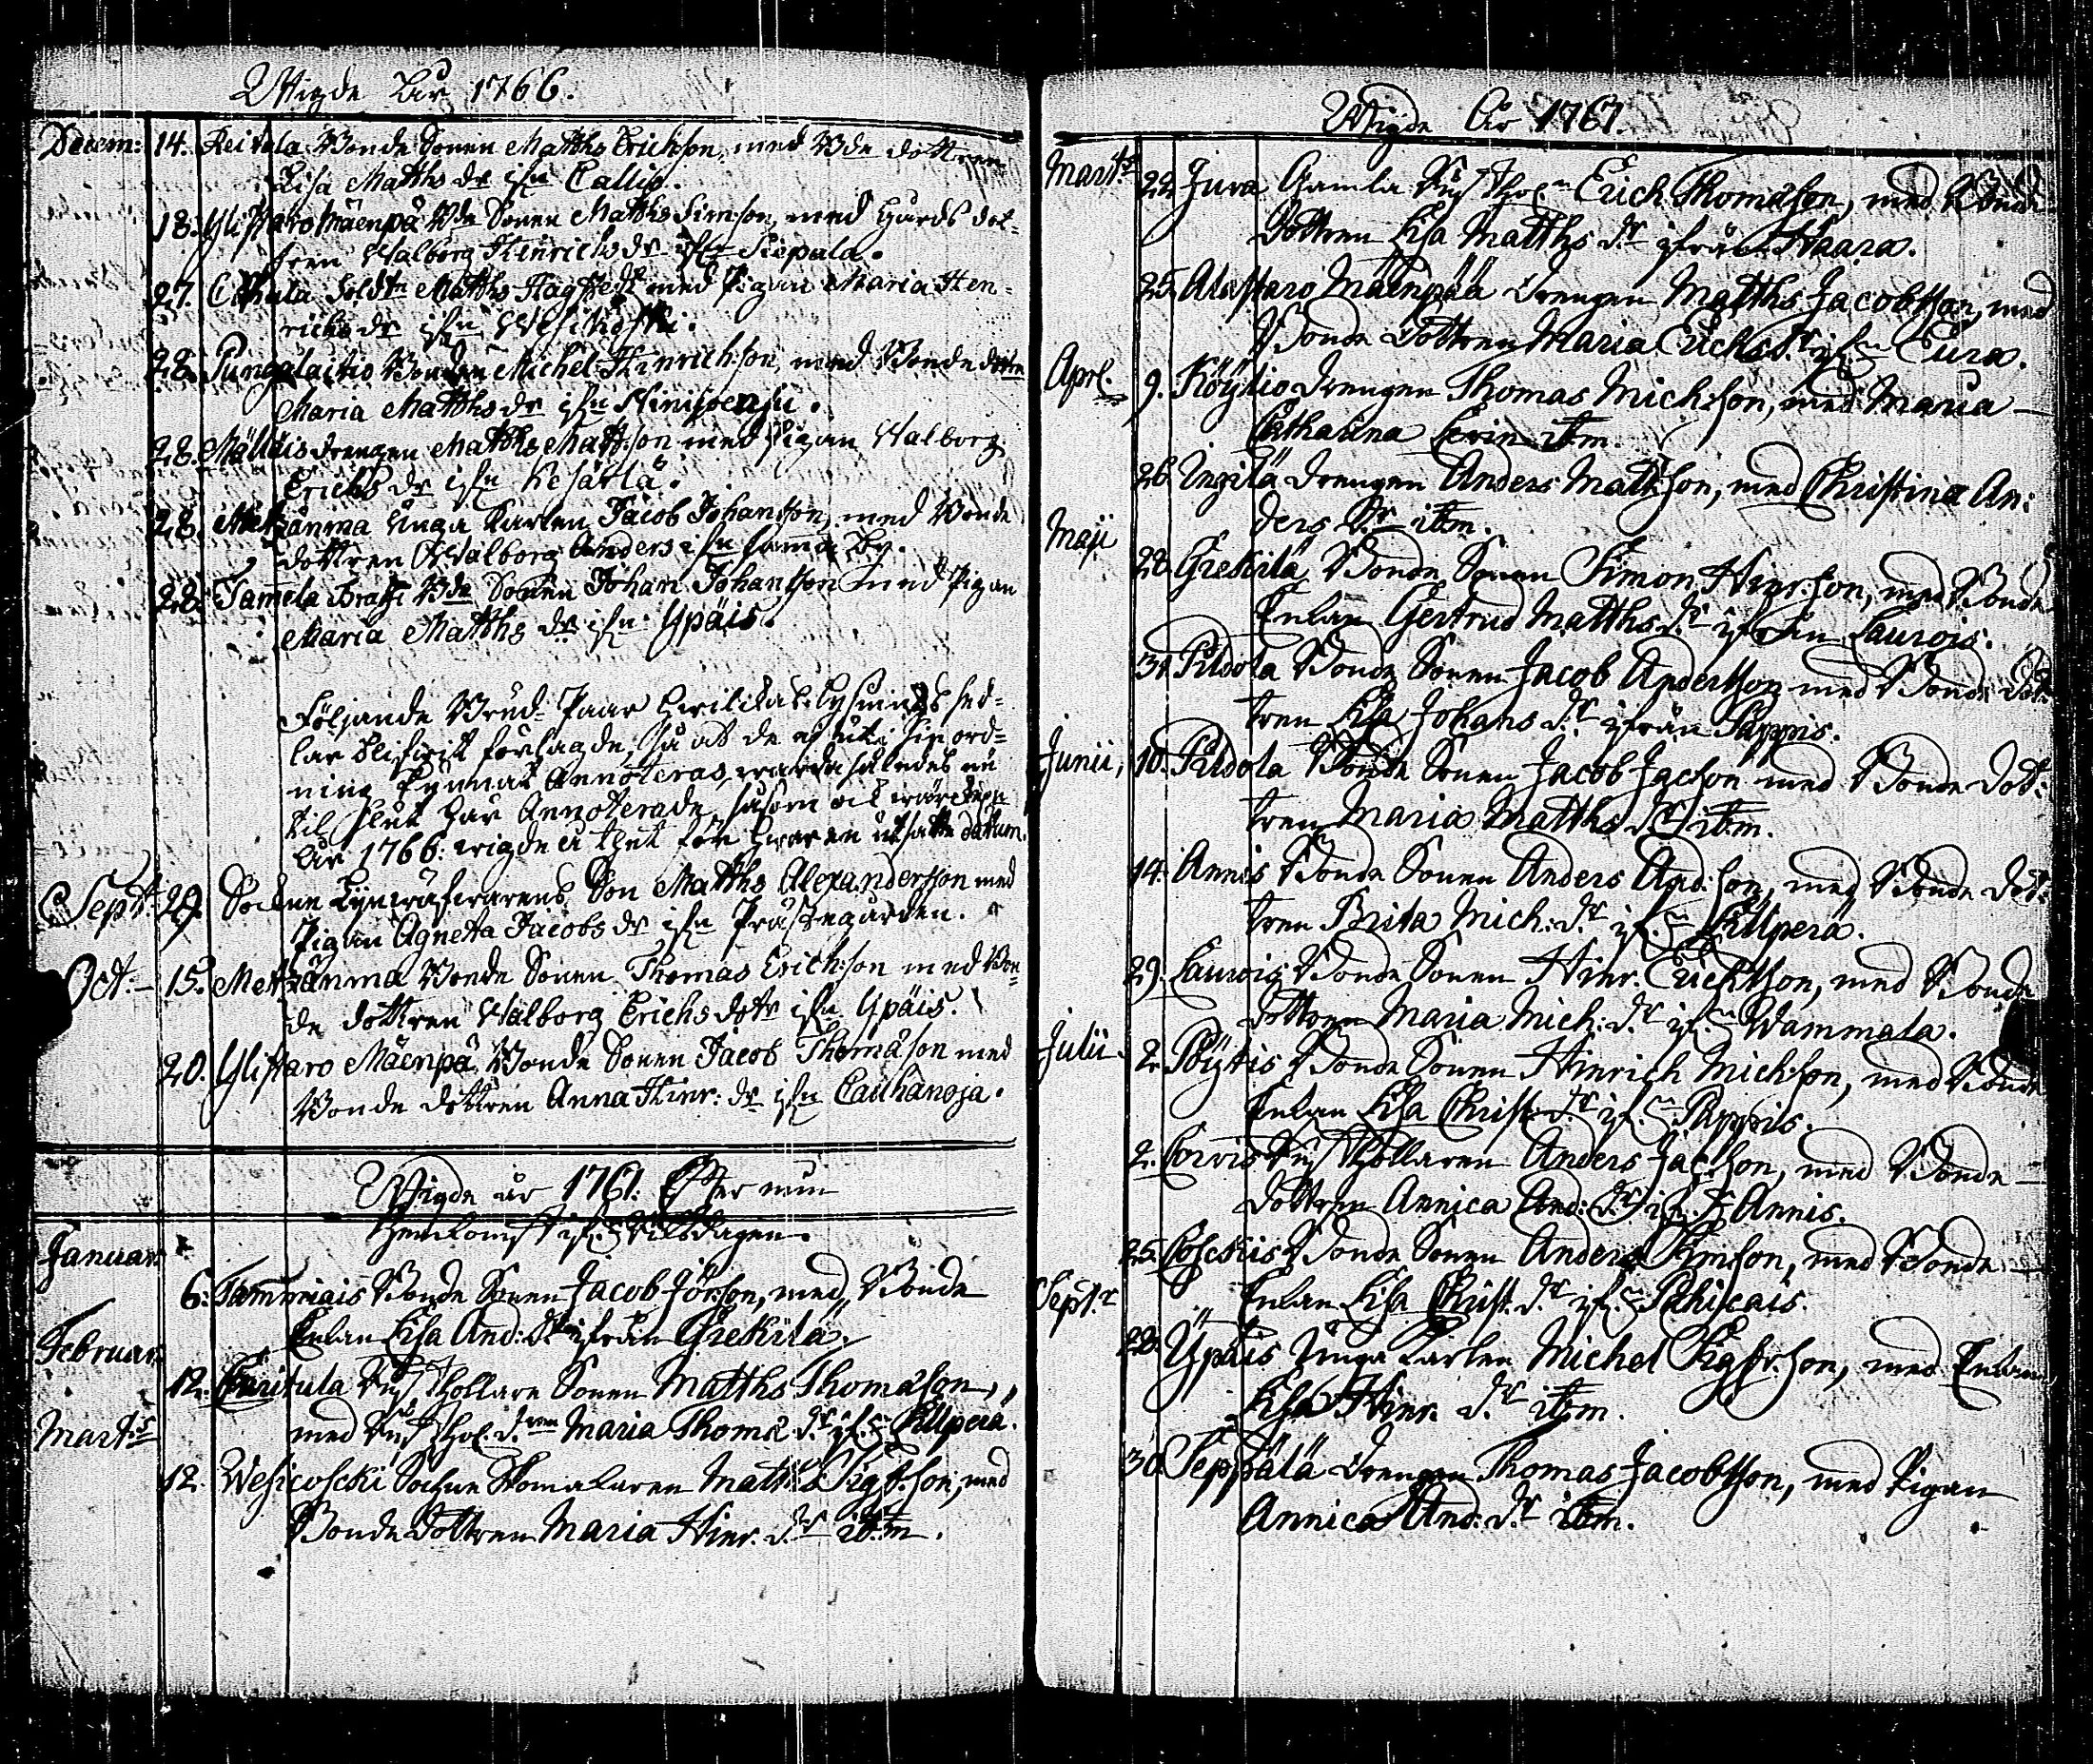 Wigde år 1766.
Decem: 14. Reikala Bonde Sonen Matths Erichson, med Bde dottren
Lisa Matths dr ifn Callis.
18. Ylistaro Mäenpä Bde Sonen Matths Simson, med Gårds dot=
tren Walborg Hinrichs dr ifn Siepala.
27. Soldtn Matths Hagstedt med Pigan Maria Hen=
richs dr ifn Wesikoski.
28. Pungalaitio Bonden Michel Hinrichson, med Bonde dottren
Maria Matths dr ifn
28. Mälläis drengen Matths Mattson med Pigan Walborg
Erichs dr ifn Kesärlä.
28. Metzänma Unga Karlen Jacob Johansson, med Bonde
dottren Walborg Anders ifn samma By.
28. Tammela Bde Sonen Johan Johansson med Pigan
Maria Matths dr ifn Ypäis.
Följande Brud-Paar hwilckas Lysnings sed=
lar blifwit förlagde, så at de ej uti sin ord=
ning kunnat Annoteras, warda således nu
til slut här Annoterade, såsom ock
År 1766. wigde å thet för hwar en utsatte datum.
Sept: 29. Sockne Son Matths Alexandersson med
Pigan Agneta Jacobs dr ifn Prästegården.
Oct: 15. Metzänma Bonde Sonen Thomas Erichson med Bon=
de dottren Walborg Erichs dotr ifn Ypäis.
20. Ylistaro Mäenpä Bonde Sonen Jacob Thomason med
Bonde dottren Anna Hinr: dr ifn Cauhanoja.
Wigde år 1767. Efter min
Hemkomst ifn Riksdagen.
Januar.
6. Tammiais Bonde Sonen Jacob Jörson, med Bonde
Enkan Lisa And: dr ifrån Grekilä.
Februar.
12. Caritula Rusthollare Sonen Matths Thomason,
med Rusthol. d.ren Maria Thoms d.r ifn Killperä.
Marti
12. Wesicoscki Sockne Skomakaren Matths Sigfrson, med
Bonde Dottren Maria Hinr. d.r itm.
Wigde År 1767.
Marti 22. Jura Gamla Rusthol.n Erich Thomason, med Bonde
Dottren Lisa Matths d.r ifrån Haara.
25. Alastaro Mäenpää Drengen Matths Jacobsson, med
Bonde Dottren Maria Erichs d.r ifn Eura.
Aprl. 9. Köyliö Drengen Thomas Michson, med Maria
Catharina Levin itm.
26. Ingilä Drengen Anders Mattson, med Christina An:
ders d.r itm.
Maji
28. Grekilä Bonde Sonen Simon Hinrson, med Bonde
Enkan Gertrud Matths d.r ifrån Laurois.
31. Pildola Bonde Sonen Jacob Andersson med Bonde Dot:
tren Lisa Johans d.r ifrån Pappis.
Junii, 10. Pildola Bonde Sonen Jacob Jacson med Bonde Dot:
tren Maria Matths d.r itm.
14. Annis Bonde Sonen Anders And:son, med Bonde Dot:
tren Brita Mich: d.r ifn Killperä.
29. Laurois Bonde Sonen Hinr. Erichsson, med Bonde
Dottren Maria Mich: d.r ifn Wammala.
Julii. 2. Pöytis Bonde Sonen Hinrich Michson, med Bonde
Enkan Lisa Christ. d.r ifn Pappis.
2. Corvis Rusthollaren Anders Jacson, med Bonde
Dottren Annica And: d.r ifn Annis.
25. Cosckis Bonde Sonen Anders Simson, med Bonde
Enkan Lisa Christ. d.r ifn Pahicais.
Sept.r
22. Ypäis Unga Karlen Michel Sigfrson, med Enkan
Lisa Hinr. d.r itm.
30. Seppälä Drengen Thomas Jacobsson, med Pigan
Annica And: d.r itm.